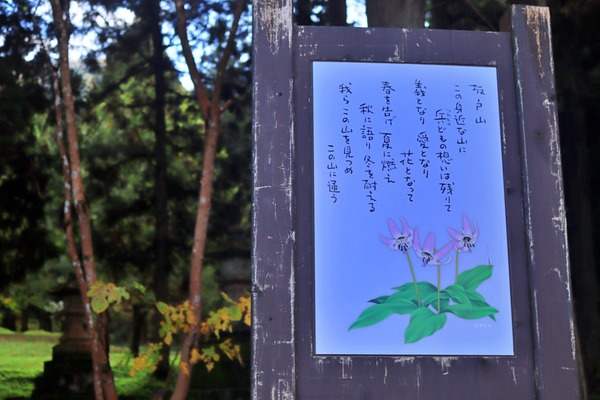 坂戸山
この身近な山に
兵どもの想いは残りて
義となり 愛となり
花となって
春を告げ 夏に燃え
秋に語り 冬を耐える
我らこの山を見つめ
この山に逢う